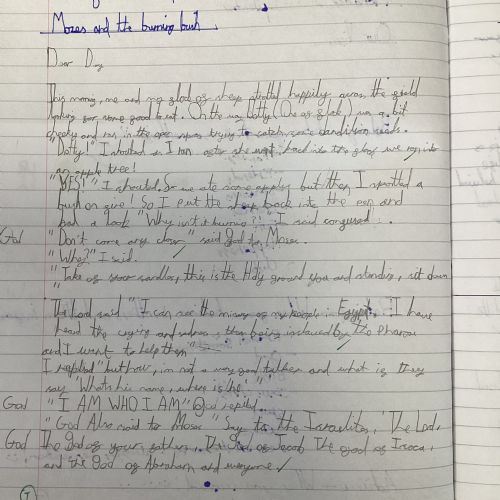 Moses and the burning bush
Dear Diary
This morning, me and my flock of sheep strolled happily across the field
looking for some good to eat. On the way Dotty (One of flock) was a bit
cheeky and ran in the open space trying to catch some dandilion seeds.
"Dotty!" I shouted as I ran after she went back into the flock we ran into
an apple tree!
"YES!" I shouted. So we ate some apples but then I spotted a
bush on fire! So I put the sheep back into the pen and
had a look "Why isn't it burning?!" I said confused...
God "Don't come any closer," said God to Moses.
"Who?" I said.
"Take of your sandles, this is the Holy ground you are standin, sit down
"
The Lord said "I can see the misery of my people in Egypt. I have
heard the crying and sadness, they being inslaved by the Pharaoh
and I want to help them"
I replied "but how, im not a very good talker and what if they
say "Whats his name, where is he."
God "I AM WHO I AM" God replied.
"God Also said to Moses "Say to the Israelites, 'The Lord,
God The God of your fathers, the God of Jacob The god of Isaac,
and the God of Abraham and everyone